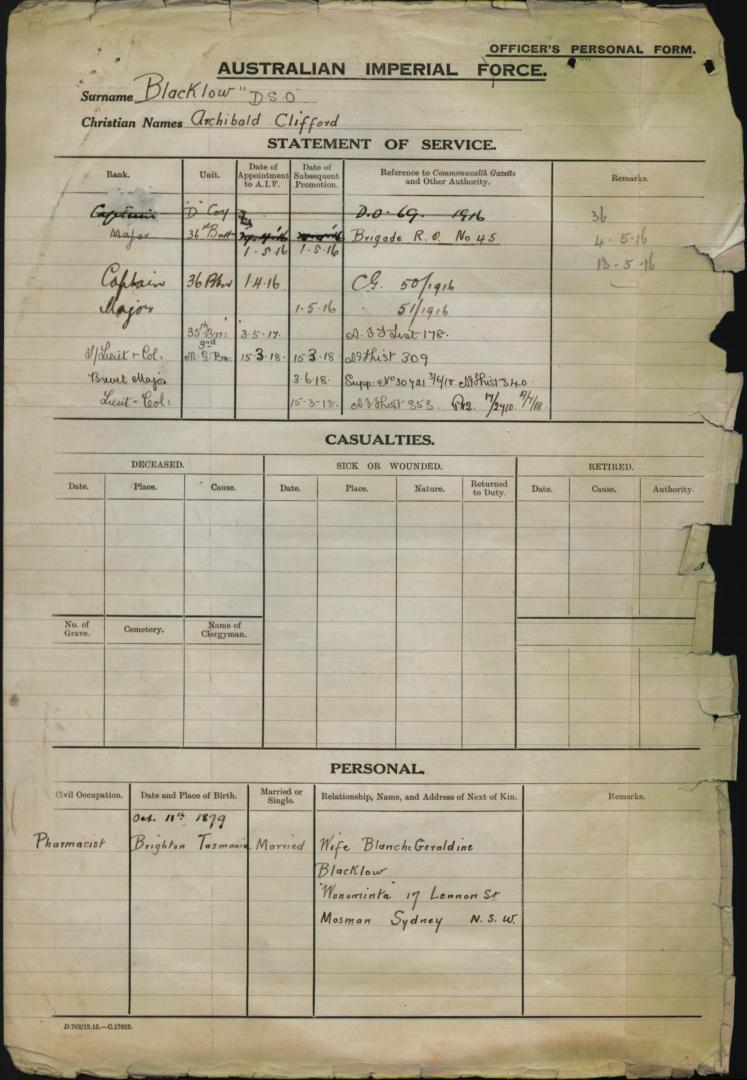 OFFICER'S PERSONAL FORM.
AUSTRALIAN IMPERIAL FORCE.
Surname Blacklow "D S O
Christian Names Archibald Clifford
STATEMENT OF SERVICE.
Rank. Unit. Date of Appointment to A.I.F. Date of Subsequent Promotion. Reference to Commonwealth Gazette and Other Authority. Remarks.
Captain "D" Coy D.O. 69. 1916 36
Major 36th Batt Brigade R.O. No 45 4-5-16
1-5-16 1-5-16 13-5-16
Captain 36 1.4.16 C.G. 50/1916
Major 1-5-16 " 51/1916
35th Bn: 3.5.17. A.I.F List 178.
T/Lieut-Col. 3rd M.G.Bn: 15.3.18. 15.3.18. AIF List 309
Brevet Major 3.6.18. Supp: No 30721 3/6/18. AIF List 340.
Lieut-Col: 15-3-18. AIF List 353.
CASUALTIES.
DECEASED. SICK OR WOUNDED. RETIRED.
Date. Place. Cause. Date. Place. Nature. Returned to Duty. Date. Cause. Authority.
No. of Grave. Cemetery. Name of Clergyman.
PERSONAL.
Civil Occupation. Date and Place of Birth. Married or Single. Relationship, Name, and Address of Next of Kin. Remarks.
Oct. 11th 1879
Pharmacist Brighton Tasmania Married Wife Blanche Geraldine
Blacklow
"Wonominta" 17 Lennon St
Mosman Sydney N.S.W.
D.762/12.15.—C.17623.